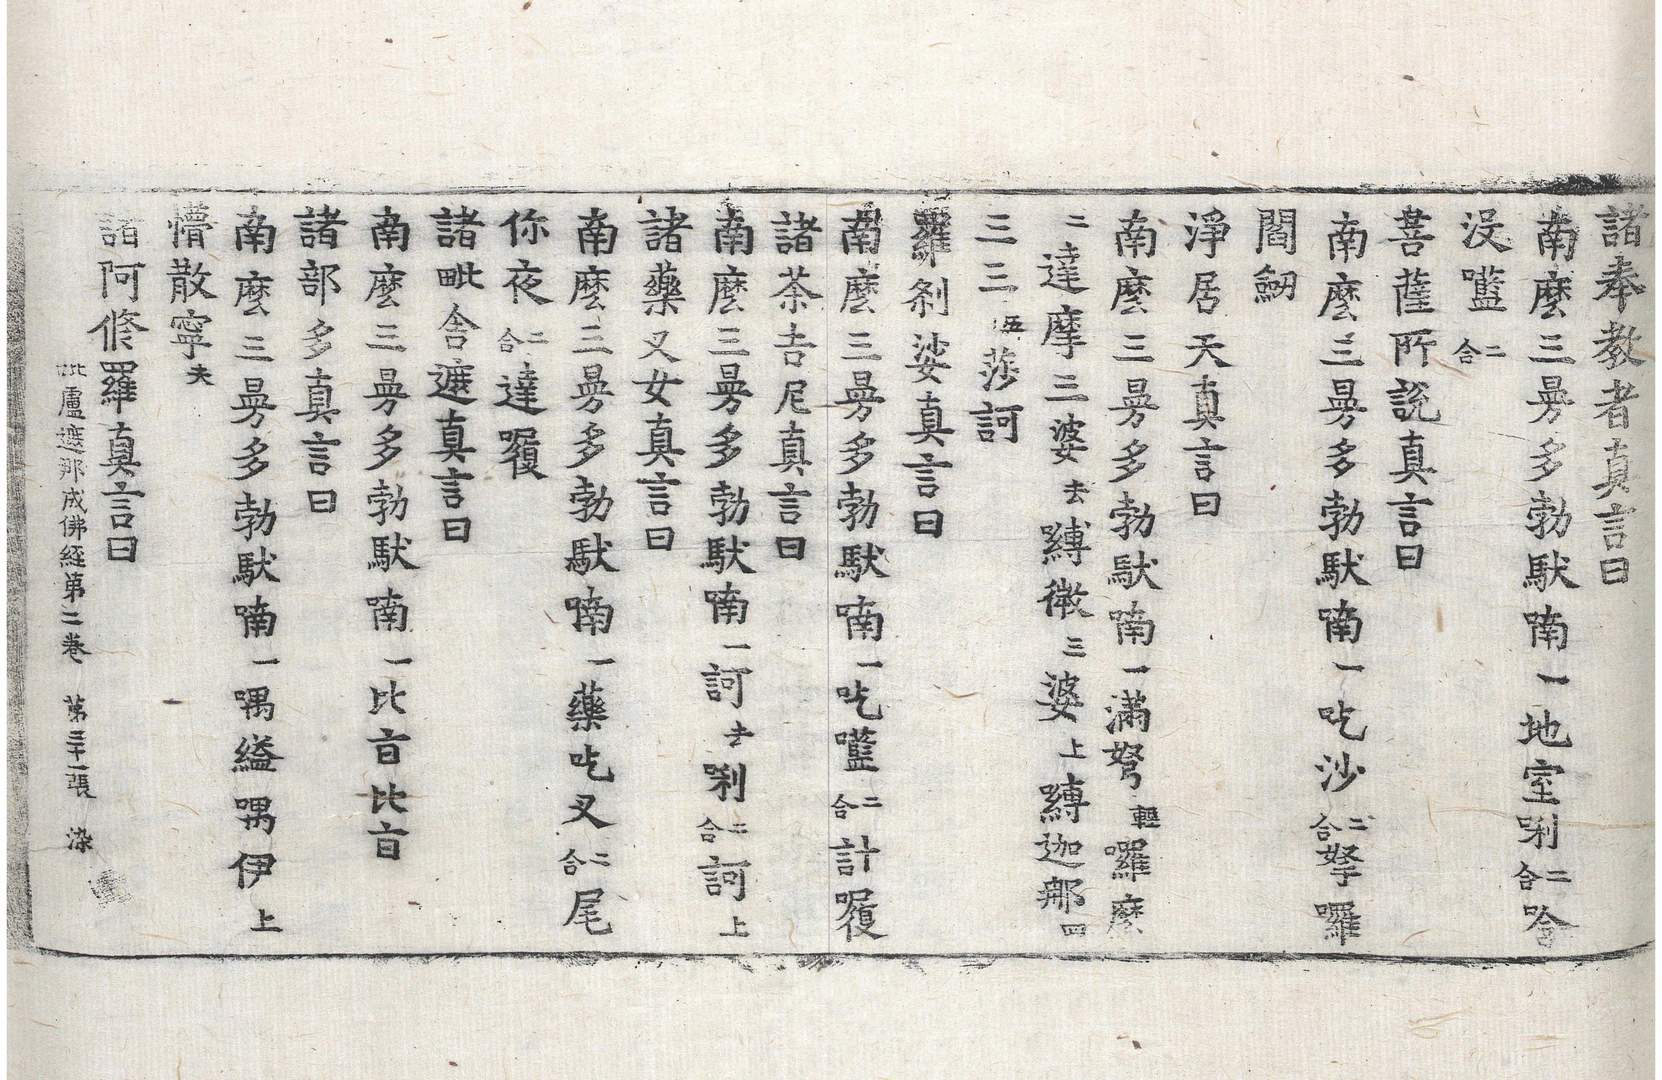 諸奉教者真言曰
南麽三曼多勃馱喃一地室唎二合唅
没嚂二合
菩薩所說真言曰
南麽三曼多勃馱喃一吃沙二合拏囉
閻劒
淨居天真言曰
南麽三曼多勃馱喃一滿弩輕囉麽
二達摩三婆去嚩微三婆上嚩迦那四
三三五莎訶
羅剎娑真言曰
南麽三曼多勃馱喃一吃嚂二合計履
諸荼吉尼真言曰
南麽三曼多勃馱喃一訶去唎二合訶上
諸藥叉女真言曰
南麽三曼多勃馱喃一藥吃叉二合尾
你夜二合達囇
諸毗舍遮真言曰
南麽三曼多勃馱喃一比旨比旨
諸部多真言曰
南麽三曼多勃馱喃一喁縊喁伊上
懵散寧去
諸阿修羅真言曰
毗盧遮那成佛經第二卷 第三十一張 染